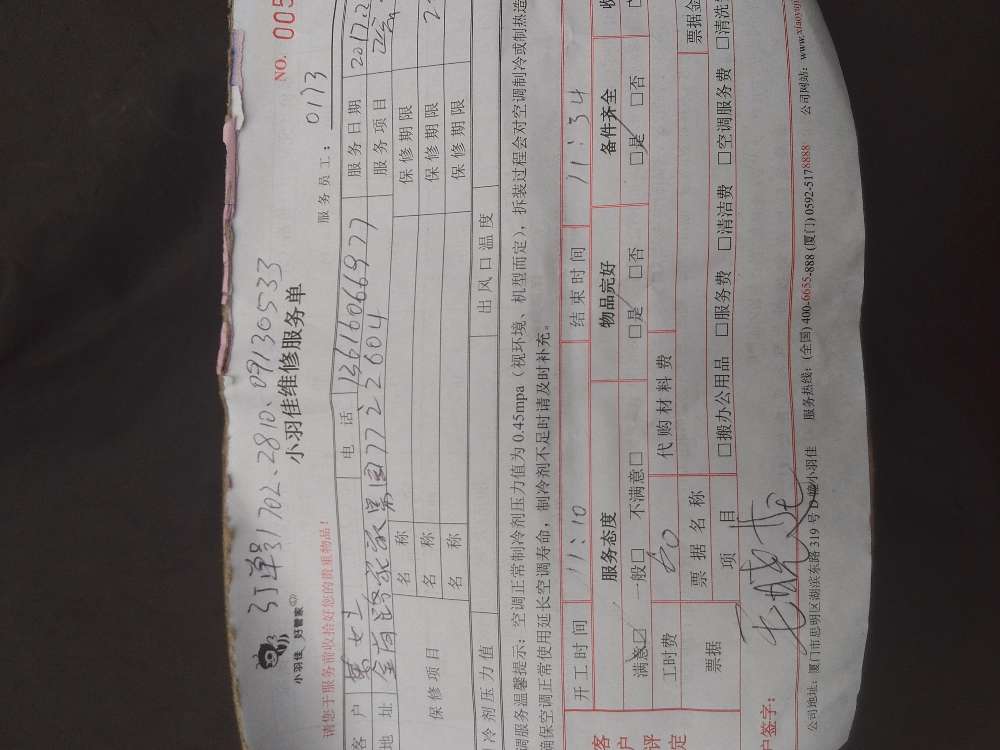 订单31702.2810.091305533
小羽佳 好管家
小羽佳维修服务单
NO. 005
请您于服务前收拾好您的贵重物品!
服务员工: 0173
客户 女士 电话 13616066977 服务日期 2017.2
地址 77-2-2604 服务项目
保修项目 名称 保修期限
名称 保修期限
名称 保修期限
冷剂压力值 出风口温度
调服务温馨提示:空调正常制冷剂压力值为0.45mpa(视环境、机型而定),拆装过程会对空调制冷或制热造
确保空调正常使用延长空调寿命,制冷剂不足时请及时补充。
开工时间 11:10 结束时间 11:34
客户评定 服务态度 物品完好 备件齐全
满意☑ 一般□ 不满意□ □是 □否 □是 □否
工时费 60 代购材料费
票据 票据名称 票据金
项目 □搬办公用品 □服务费 □清洁费 □空调服务费 □清洗
户签字:
公司地址:厦门市思明区湖滨东路319号D幢小羽佳 服务热线:(全国)400-6655-888(厦门)0592-5178888 公司网站:www.xiaoyuj